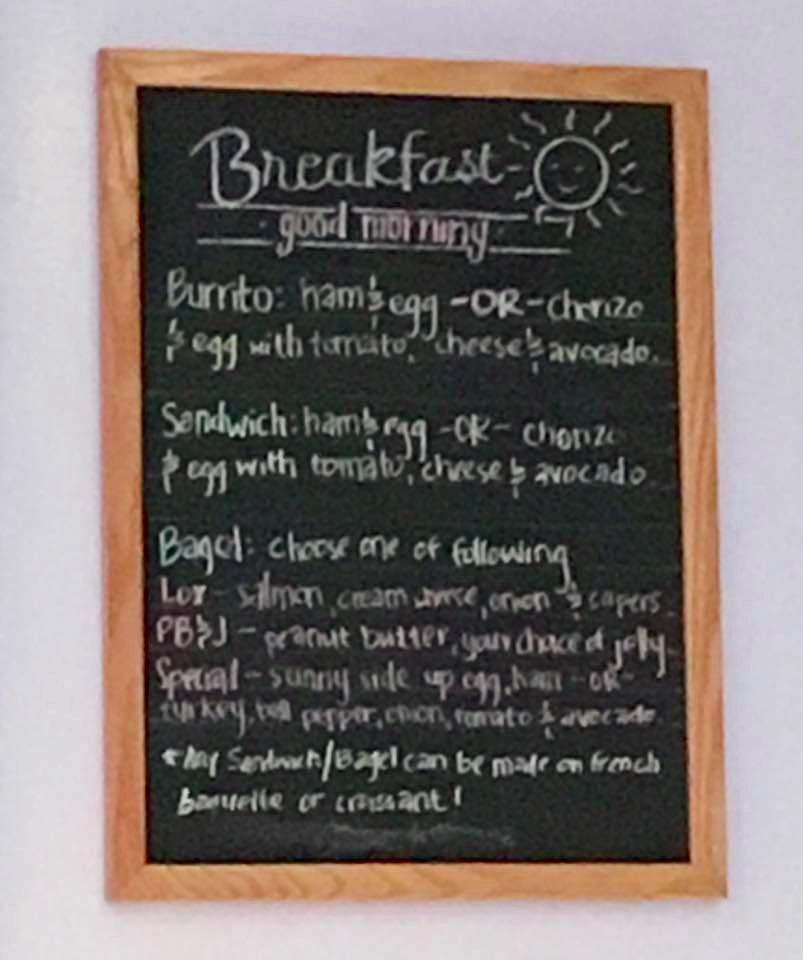 Breakfast
good morning
Burrito: ham & egg -OR- chorizo
& egg with tomato, cheese & avocado.
Sandwich: ham & egg -OR- chorizo
& egg with tomato, cheese & avocado
Bagel: choose one of following
Lox - salmon, cream cheese, onion & capers.
PB&J - peanut butter, your choice of jelly
Special - sunny side up egg, ham -OR-
turkey, bell pepper, onion, tomato & avocado.
* Any Sandwich/Bagel can be made on french
baguette or croissant!